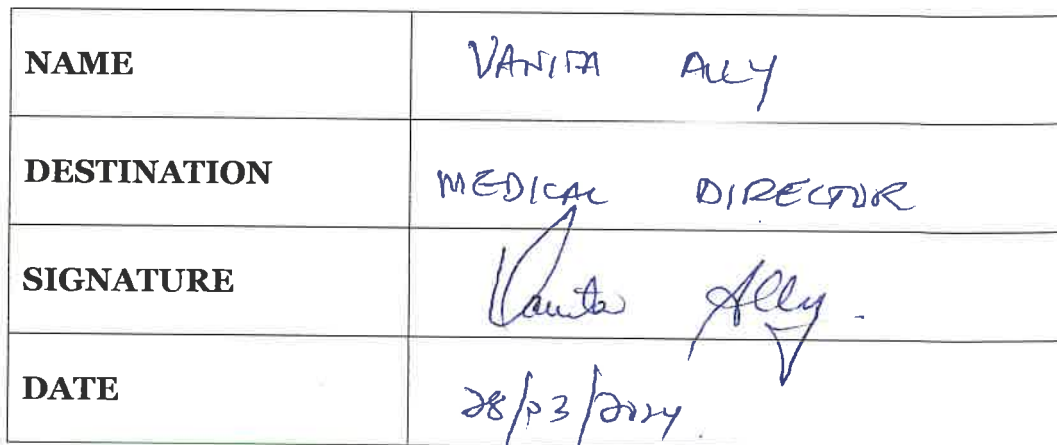 NAME VANITA ALLY
DESTINATION MEDICAL DIRECTOR
SIGNATURE Vanita Ally.
DATE 28/03/2024